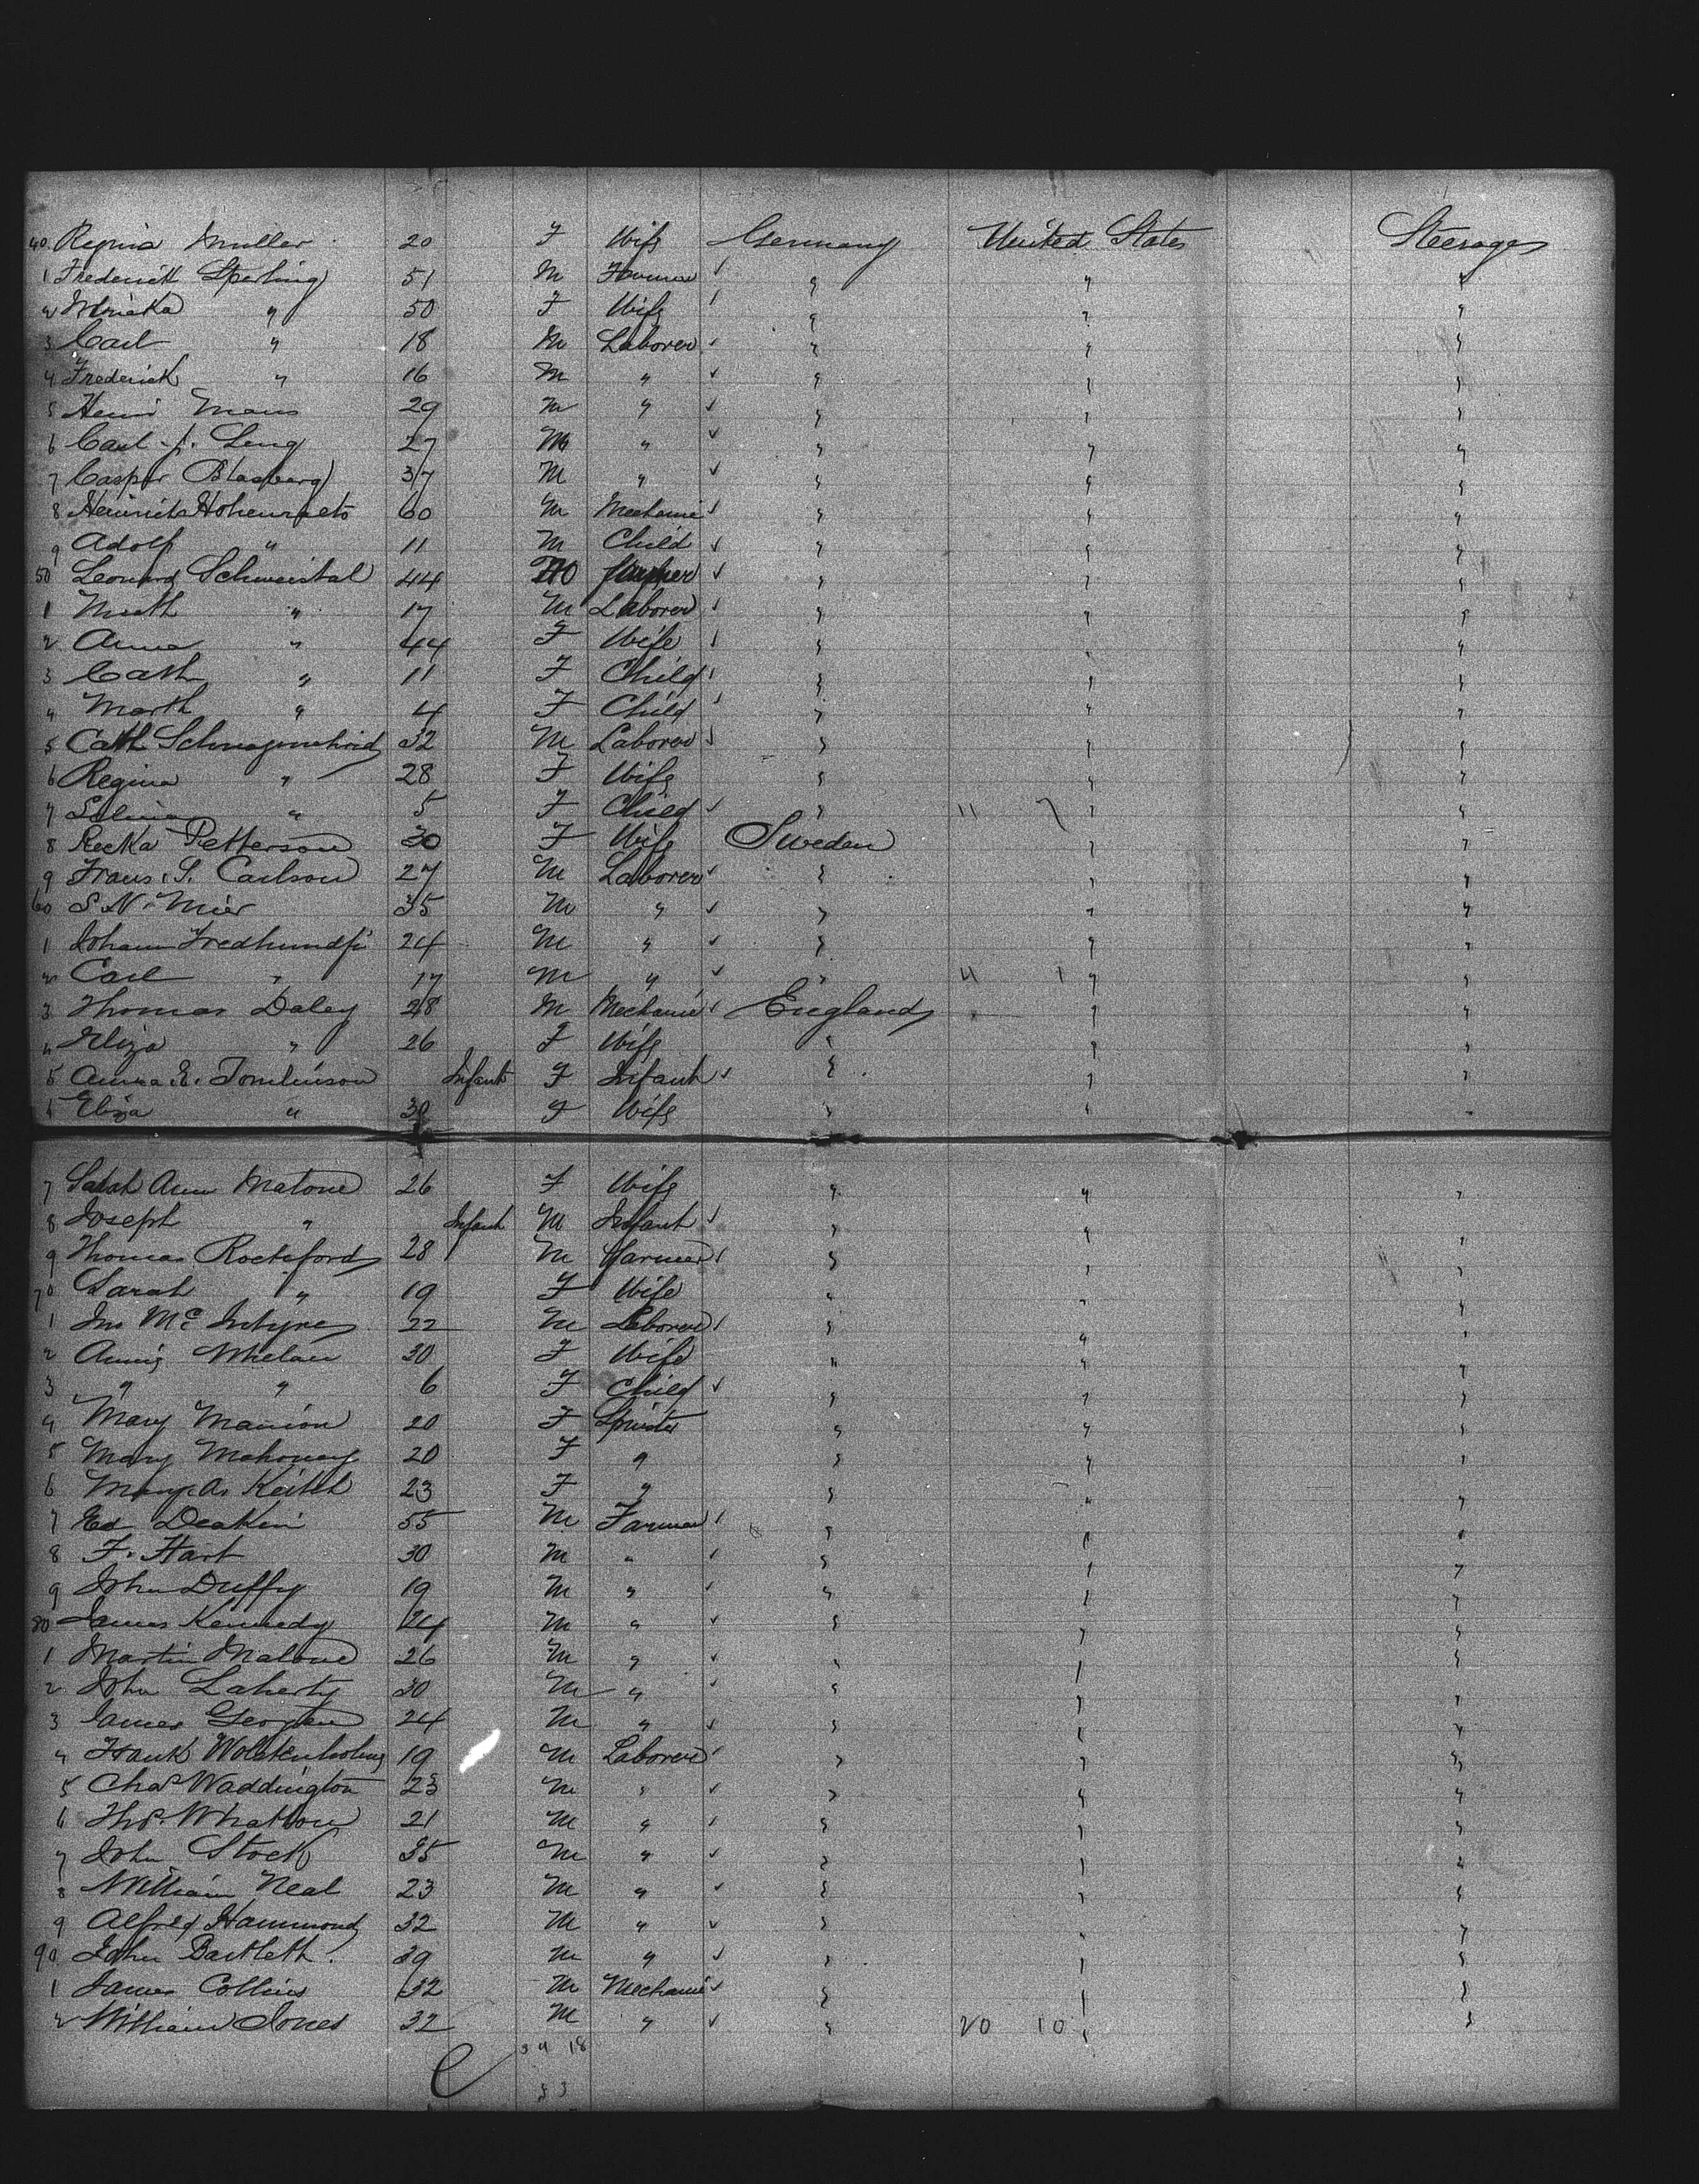 40 Regina Muller 20 F Wife Germany United States Steerage
1 Frederick Sperling 51 M Farmer " " "
2 " 50 F Wife " " "
3 Carl " 18 M Laborer " " "
4 Frederick " 16 M " " " "
5 Henri Maus 29 M " " " "
6 Carl J. Leng 27 M " " " "
7 Caspar Blasberg 37 M " " " "
8 Heinrich 60 M Mechanic " " "
9 Adolf " 11 M Child " " "
50 Leonard Schweistal 44 M Farmer " " "
1 Math " 17 M Laborer " " "
2 Anna " 44 F Wife " " "
3 Cath " 11 F Child " " "
4 Marth " 4 F Child " " "
5 Cath 32 M Laborer " " "
6 Regina " 28 F Wife " " "
7 " 5 F Child " 11 7 " "
8 Recka Petterson 30 F Wife Sweden " "
9 Frans. S. Carlson 27 M Laborer " " "
60 S. N. Mier 35 M " " " "
1 Johann 24 M " " " "
2 Carl " 17 M " " 4 1 " "
3 Thomas Daley 28 M Mechanic England " "
4 Eliza " 26 F Wife " " "
5 Anna. E. Tomlinson Infant F Infant " " "
6 Eliza " 30 F Wife " " "
7 Sarah Ann Malone 26 F Wife " " "
8 Joseph " Infant M Infant " " "
9 Thomas Rocheford 28 M Farmer " " "
70 Sarah " 19 F Wife " " "
1 Jno McIntyre 22 M Laborer " " "
2 Annie Whelan 30 F Wife " " "
3 " " 6 F Child " " "
4 Mary Manion 20 F Spinster " " "
5 Mary Mahoney 20 F " " " "
6 Mary A. Keitch 23 F " " " "
7 Ed Deakin 55 M Farmer " " "
8 F. Hart 30 M " " " "
9 John Duffy 19 M " " " "
80 James Kennedy 24 M " " " "
1 Martin Malone 26 M " " " "
2 John Laherty 30 M " " " "
3 James 24 M " " " "
4 Frank Wolstenholme 19 M Laborer " " "
5 Chas Waddington 23 M " " " "
6 Thos. Whatton 21 M " " " "
7 John Stock 35 M " " " "
8 William Neal 23 M " " " "
9 Alfred Hammond 32 M " " " "
90 John Bartlett 39 M " " " "
1 James Collins 32 M Mechanic " " "
2 William Jones 32 M " " 20 10 " "
34 18
53